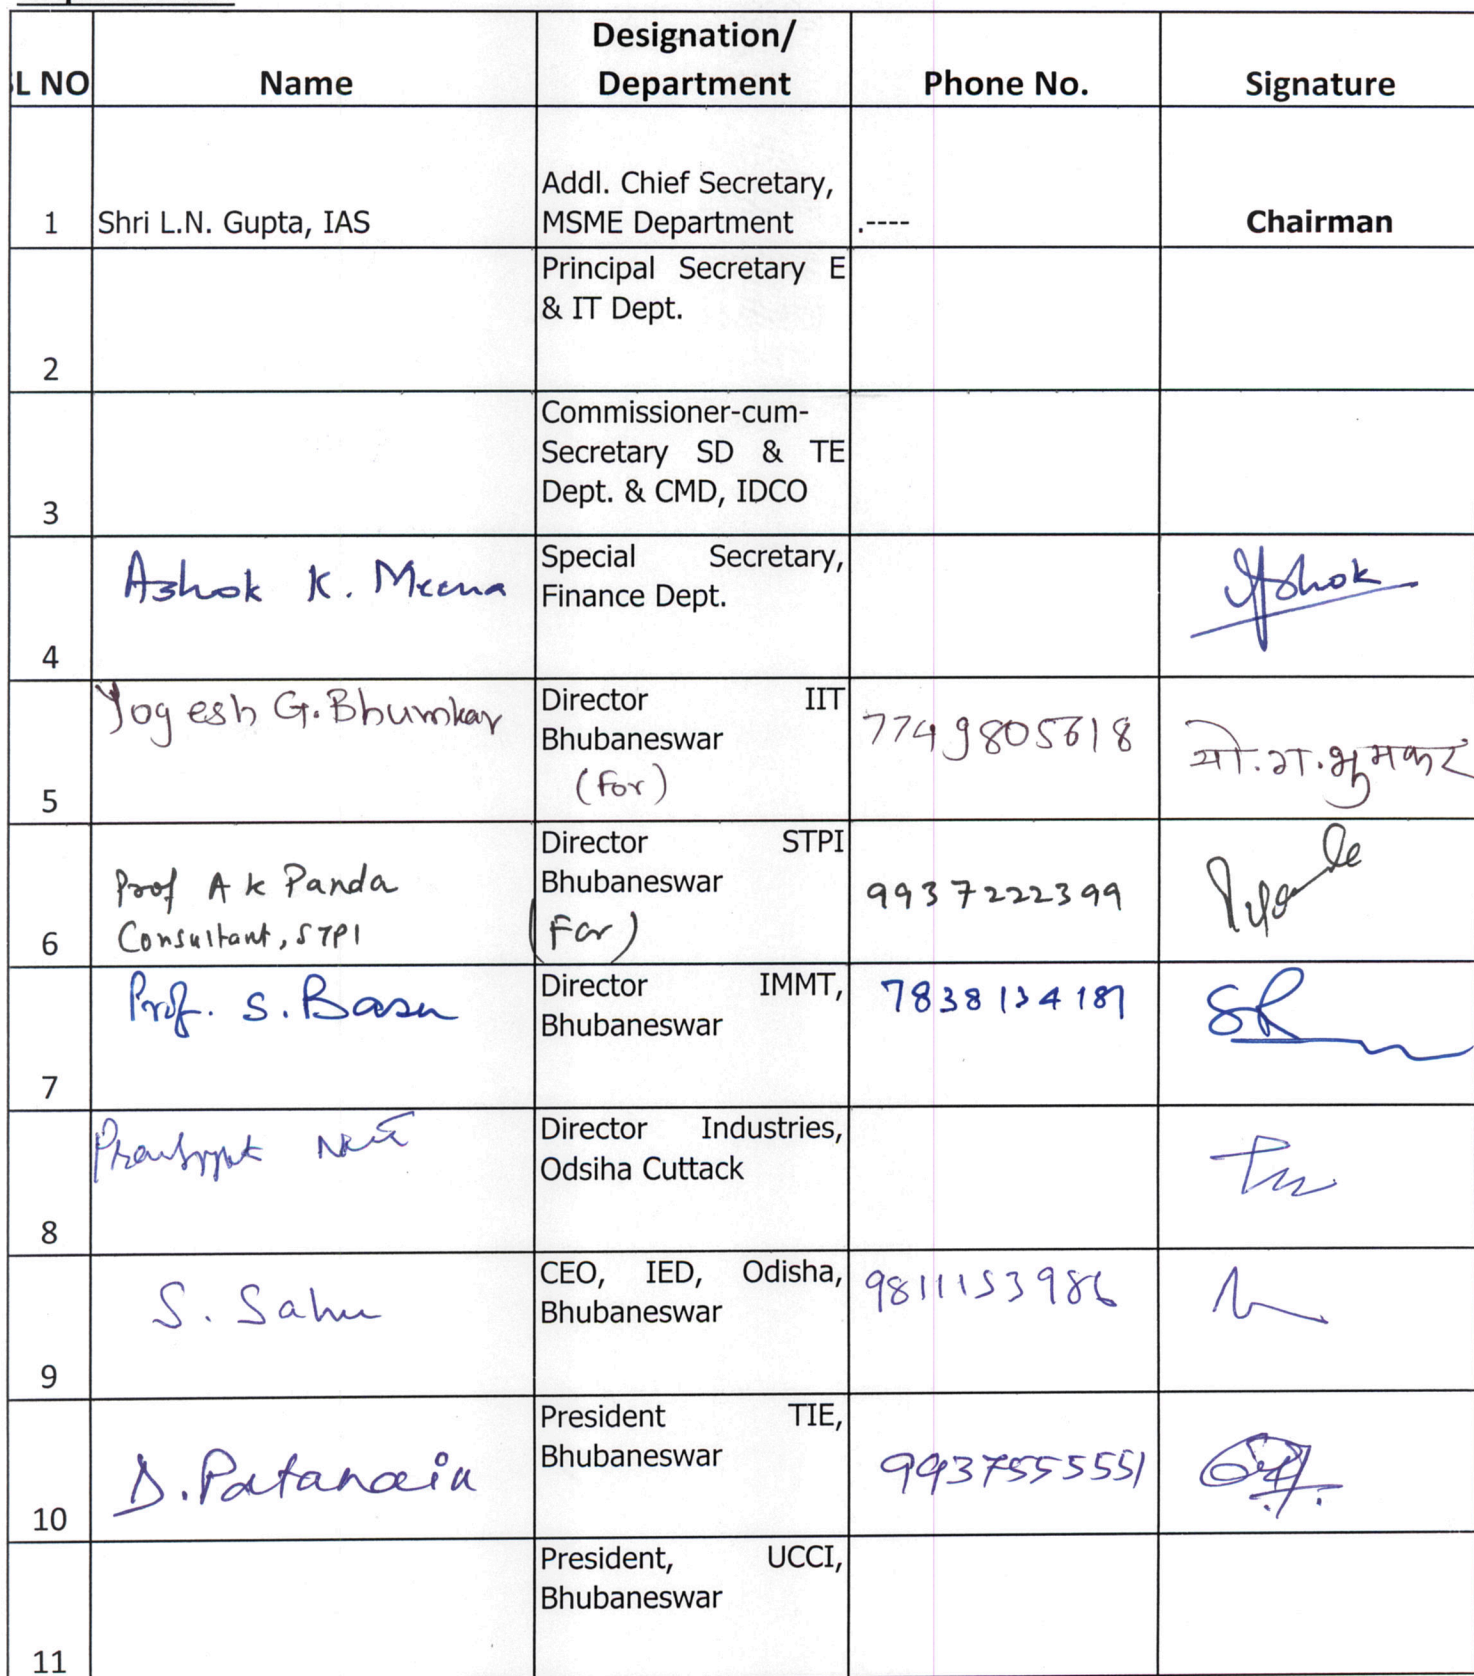 L NO
Name
Designation/
Department
Phone No.
Signature
1
Shri L.N. Gupta, IAS
Addl. Chief Secretary,
MSME Department
.----
Chairman
2
Principal Secretary E
& IT Dept.
3
Commissioner-cum-
Secretary SD & TE
Dept. & CMD, IDCO
4
Ashok K. Meena
Special Secretary,
Finance Dept.
Ashok
5
Yogesh G. Bhumkar
Director IIT
Bhubaneswar
(For)
7749805618
यो.ग.भुमकर
6
Prof A K Panda
Consultant, STPI
Director STPI
Bhubaneswar
(For)
9937222399
7
Prof. S. Basu
Director IMMT,
Bhubaneswar
7838134181
8
Director Industries,
Odsiha Cuttack
9
S. Sahu
CEO, IED, Odisha,
Bhubaneswar
9811153986
10
D. Patanaik
President TIE,
Bhubaneswar
9937555551
11
President, UCCI,
Bhubaneswar